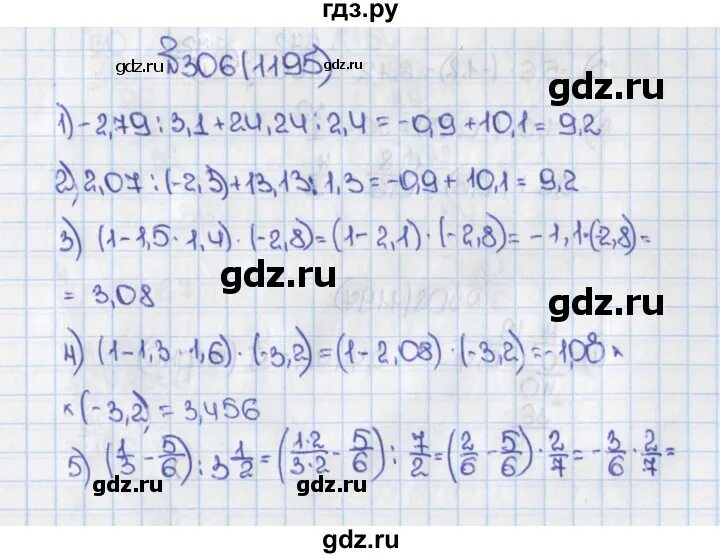 гдз.ру
№306(1195)
gdz.ru gdz.ru gdz.ru
1) -2,79 : 3,1 + 24,24 : 2,4 = -0,9 + 10,1 = 9,2
2) 2,07 : (-2,3) + 13,13 : 1,3 = -0,9 + 10,1 = 9,2
3) (1-1,5·1,4)·(-2,8) = (1-2,1)·(-2,8) = -1,1·(2,8) =
gdz.ru
= 3,08
gdz.ru
4) (1-1,3·1,6)·(-3,2) = (1-2,08)·(-3,2) = -1,08 ×
× (-3,2) = 3,456
5) (1/3 - 5/6) : 3 1/2 = (1·2/3·2 - 5/6) : 7/2 = (2/6 - 5/6) · 2/7 = -3/6 · 2/7 =
gdz.ru gdz.ru
gdz.ru gdz.ru